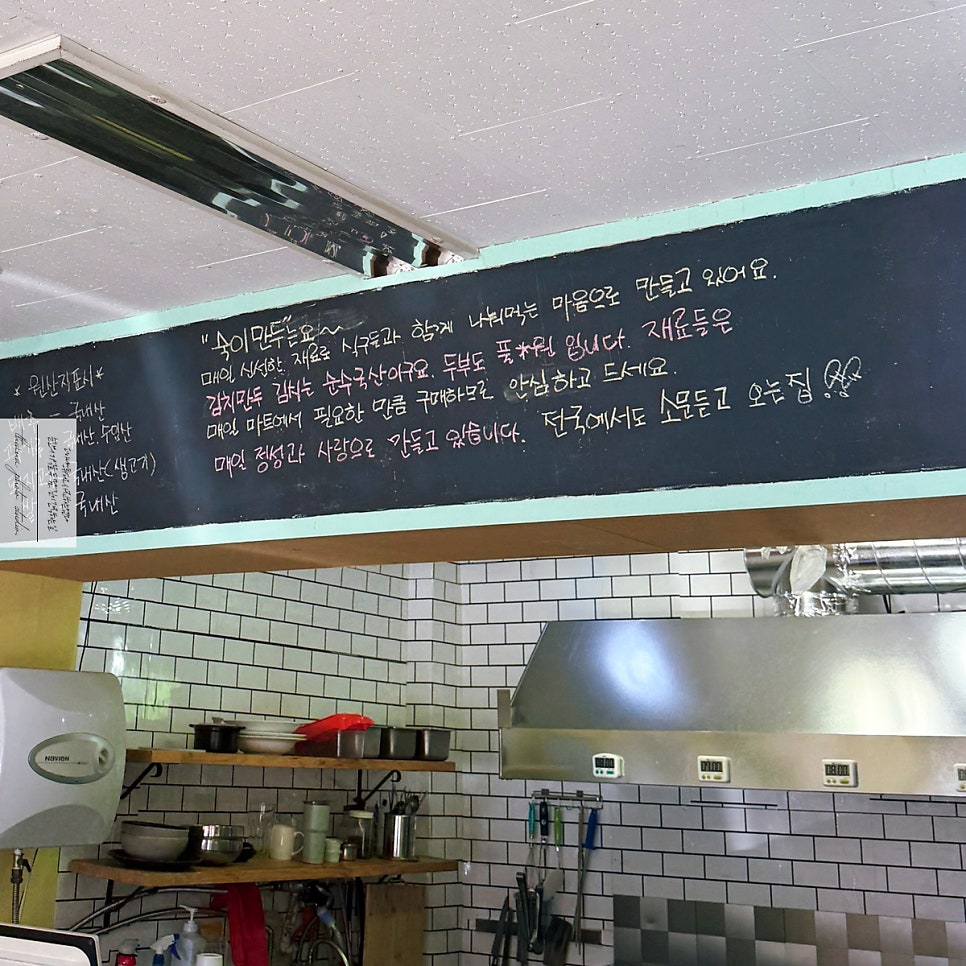 *원산지표시*
국내산
국내산(생고기)
국내산
"숙이만두"는요~
매일 신선한 재료로 식구들과 함께 나눠먹는 마음으로 만들고 있어요.
김치만두 김치는 순수국산이구요. 두부도 풀*원 입니다. 재료들은
매일 마트에서 필요한 만큼 구매하므로 안심하고 드세요.
매일 정성과 사랑으로 만들고 있습니다. 전국에서도 소문듣고 오는집
NAVIEN